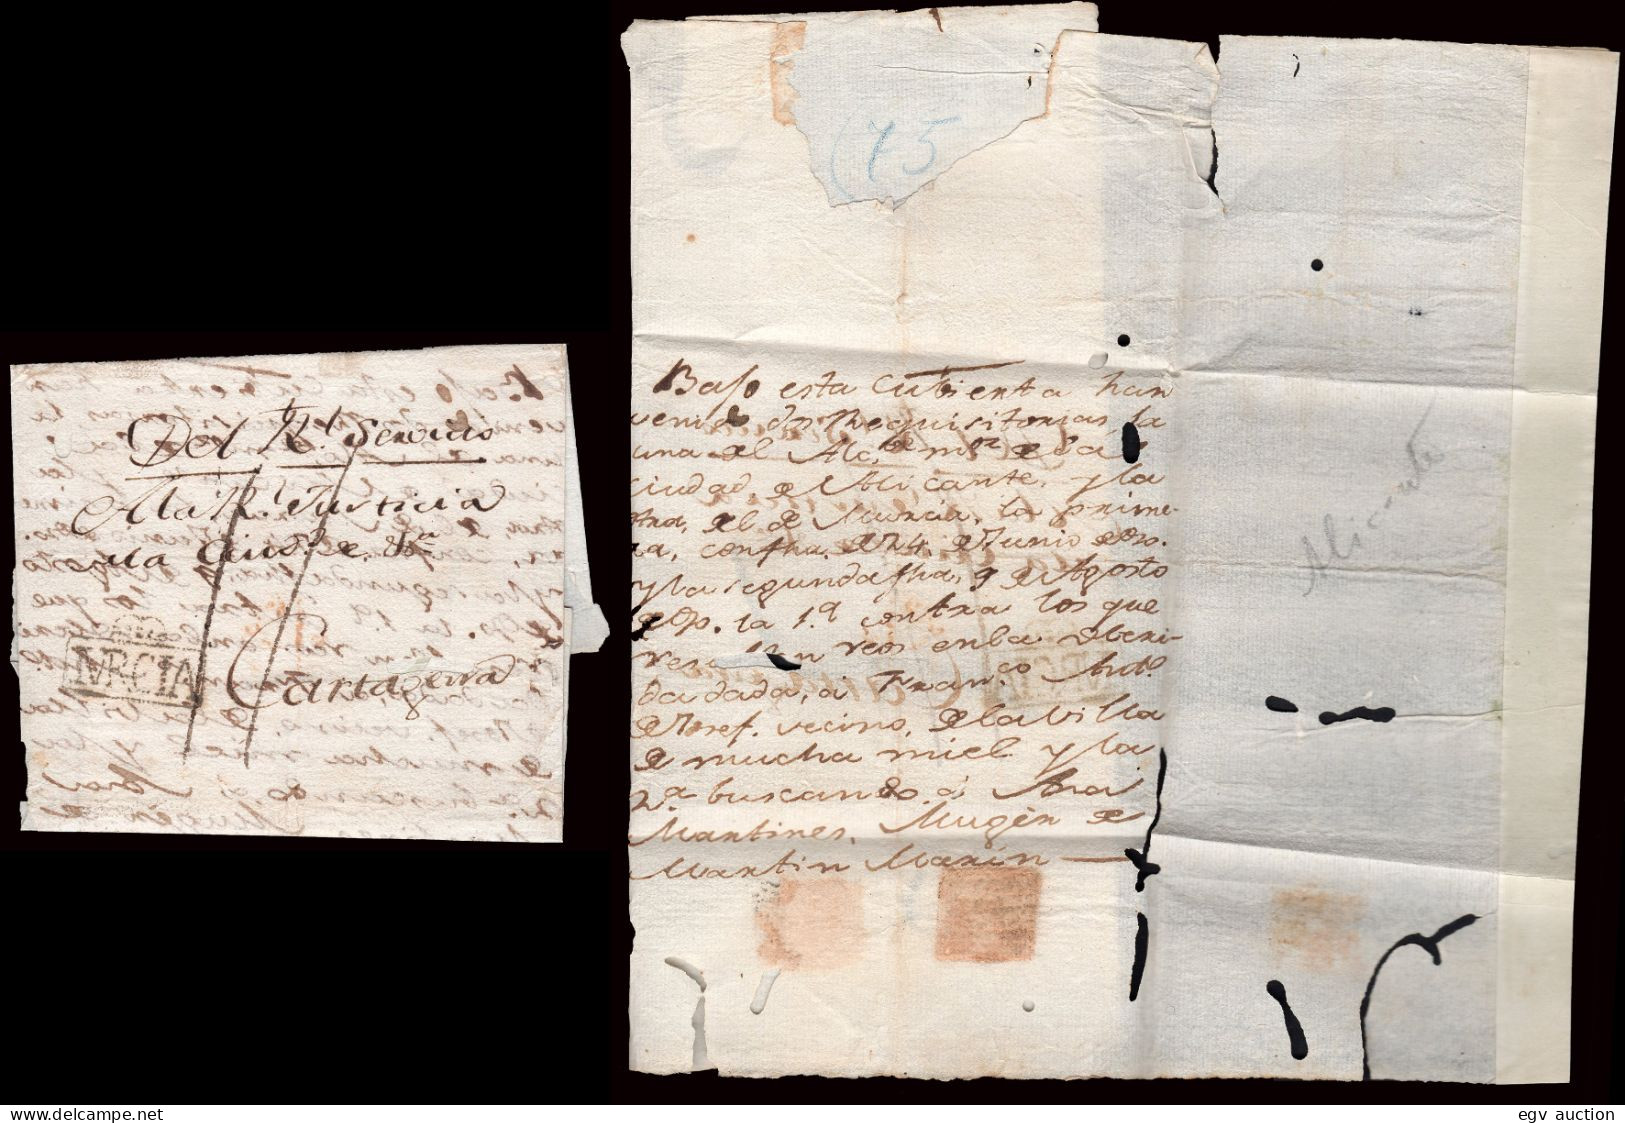 Del Rl. Servicio
A la Rl. Justicia
Ciud. de
Cartagena
MVRCIA
(75
Bajo esta Cubierta han
venido dos Requisitorias, la
una del Alc.de mor. de la
Ciudad, de Alicante, y la
otra, del de Murcia, la prime-
ra, con fha, de 24, de Junio
y la segunda fha, 9 de Agosto
la 1.a contra los que
reos en la
dada, á Fran.co
vecino, de la Villa
de mucha miel y la
2.a buscando á Ana
Martines, Mugér de
Martin Marin
Alicante
www.delcampe.net
egv auction